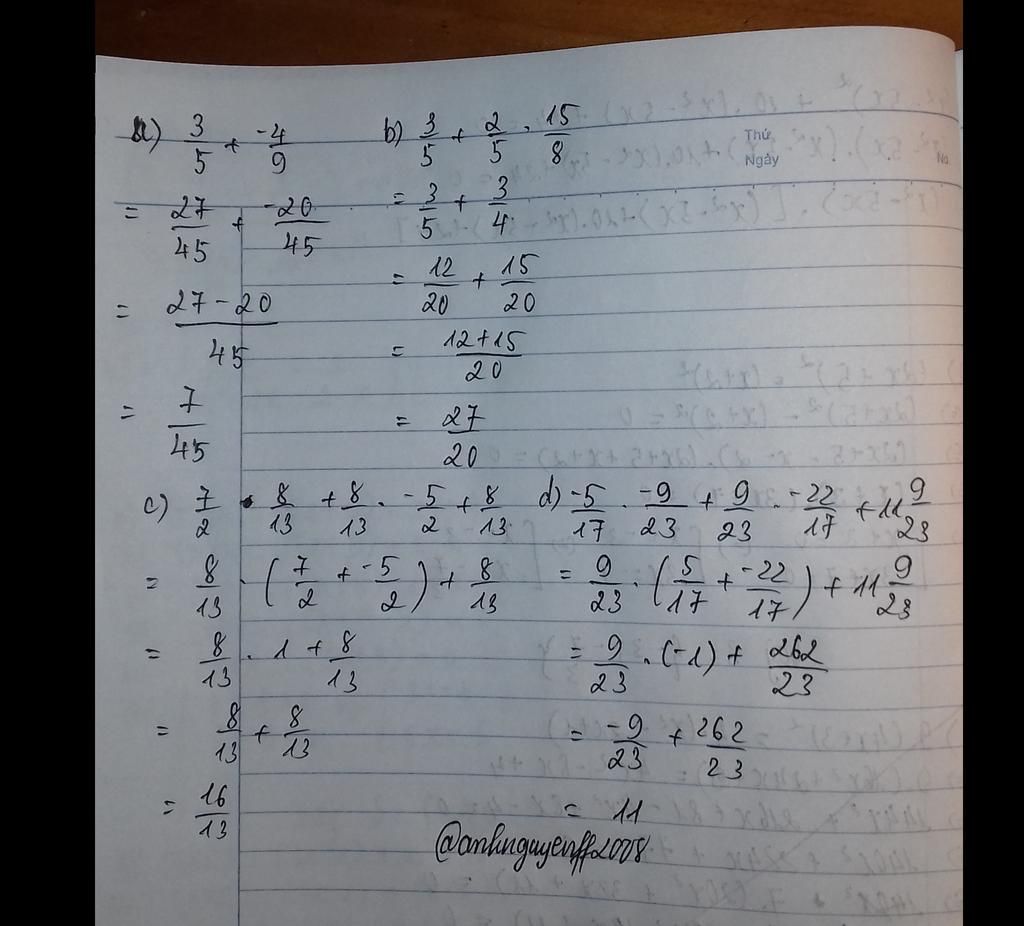 a) 3/5 + -4/9
= 27/45 + -20/45
= 27 - 20/45
= 7/45
b) 3/5 + 2/5 . 15/8
= 3/5 + 3/4
= 12/20 + 15/20
= 12+15/20
= 27/20
Thứ
Ngày
No
c) 7/2 . 8/13 + 8/13 . -5/2 + 8/13
= 8/13 . (7/2 + -5/2) + 8/13
= 8/13 . 1 + 8/13
= 8/13 + 8/13
= 16/13
d) -5/17 . -9/23 + 9/23 . -22/17 + 11 9/23
= 9/23 . (5/17 + -22/17) + 11 9/23
= 9/23 . (-1) + 262/23
= -9/23 + 262/23
= 11
@anhnguyenff2008